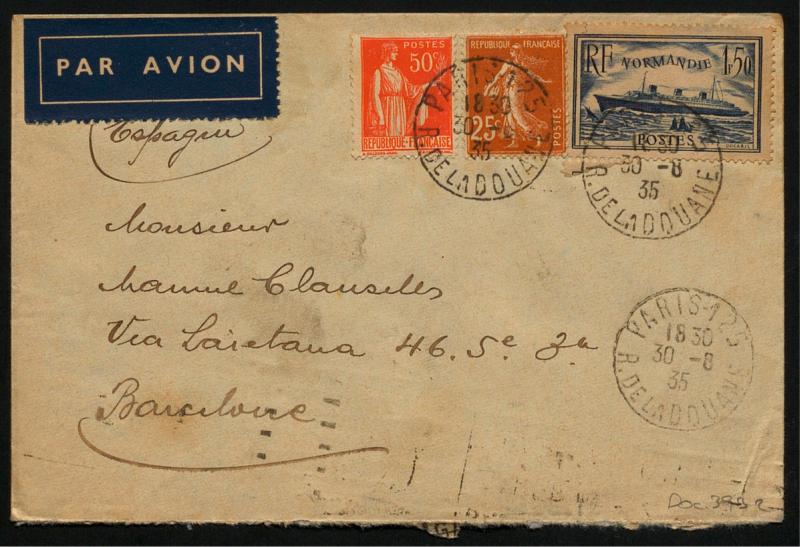 PAR AVION
POSTES
50c
RÉPUBLIQUE-FRANÇAISE
REPUBLIQUE FRANÇAISE
25c
POSTES
RF NORMANDIE 1f50
POSTES
PARIS-125
18 30
30 -8
35
R. DE LA DOUANE
30 -8
35
R. DE LA DOUANE
Espagne
Monsieur
Clausells
Via Laietana 46. 5e 2a
Barcelone
PARIS-125
18 30
30 -8
35
R. DE LA DOUANE